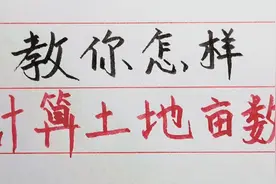 教你怎样
计算土地亩数